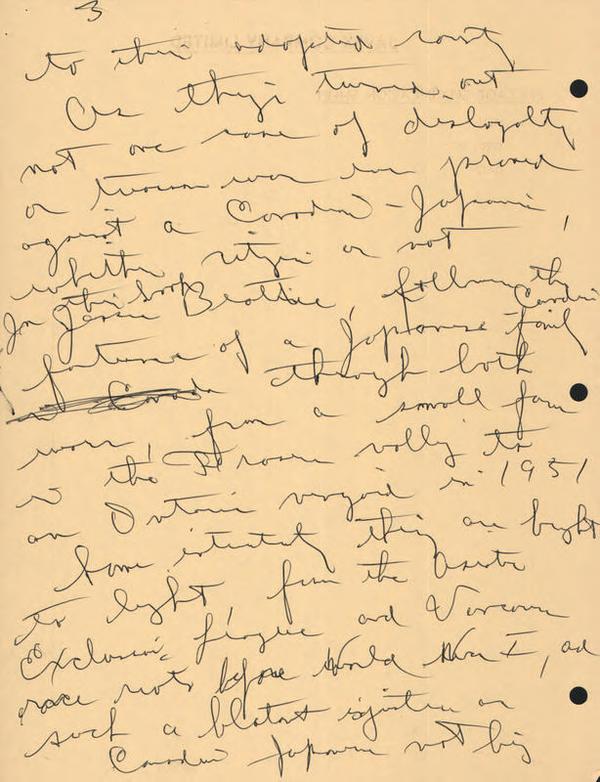 3
to their adopted country
As things turned out
not one case of disloyalty
or treason was ever proved
against a Canadian-Japanese,
whether citizen or not
In this book Jessie Beattie, following the
fortunes of a Japanese Canadian family
through both
wars, from a small farm
in the Fraser valley to
an Ontario vineyard in 1951
Some they are brought
to light, from the Asiatic
Exclusion League and Vancouver
race riots before World War I, and
such a blatant injustice as
Canadian Japanese not being